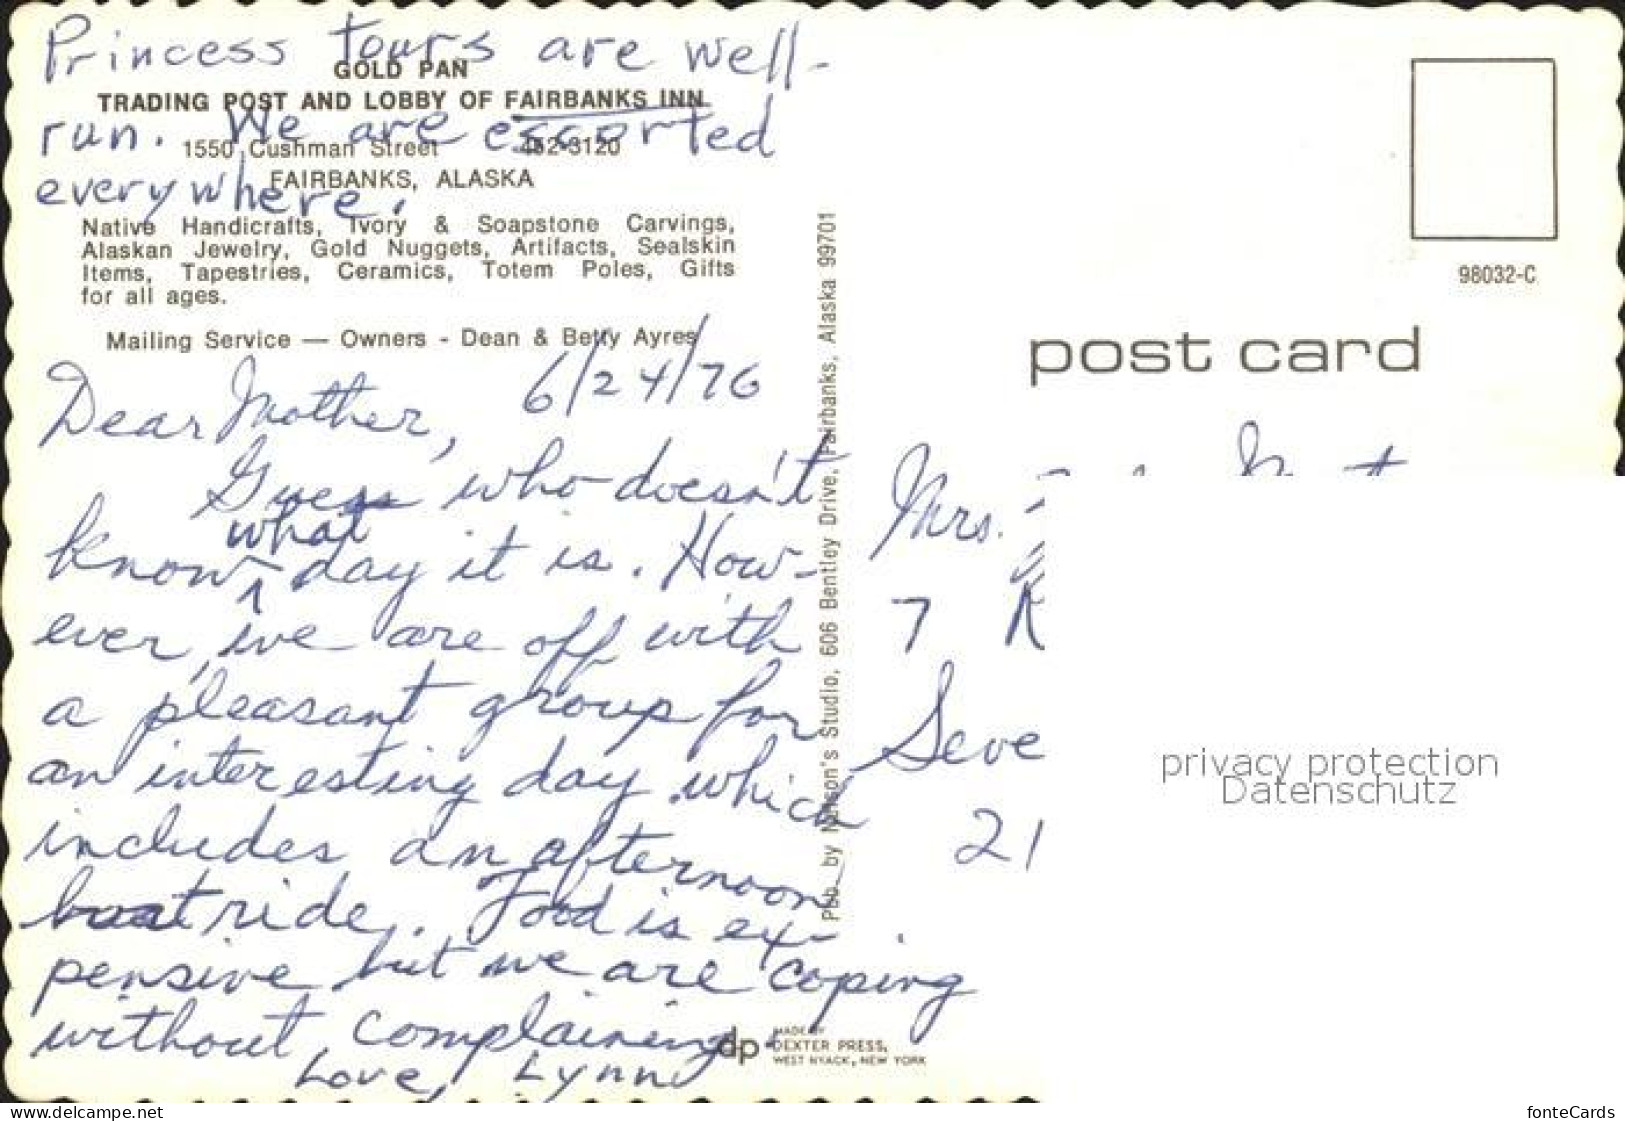 Princess tours are well-
GOLD PAN
TRADING POST AND LOBBY OF FAIRBANKS INN
run. We are escorted
1550 Cushman Street 452-3120
FAIRBANKS, ALASKA
everywhere.
Native Handicrafts, Ivory & Soapstone Carvings,
Alaskan Jewelry, Gold Nuggets, Artifacts, Sealskin
Items, Tapestries, Ceramics, Totem Poles, Gifts
for all ages.
Mailing Service — Owners - Dean & Betty Ayres
6/24/76
Dear Mother,
Guess who doesn't
know what day it is. How-
ever, we are off with
a pleasant group for
an interesting day which
includes an afternoon
boat ride. Food is ex-
pensive but we are coping
without complaining
Love, Lynn
Pub. by Nelson's Studio, 606 Bentley Drive, Fairbanks, Alaska 99701
dp MADE BY
DEXTER PRESS,
WEST NYACK, NEW YORK
98032-C
post card
Mrs.
7
Seve
21
privacy protection
Datenschutz
www.delcampe.net
fonteCards